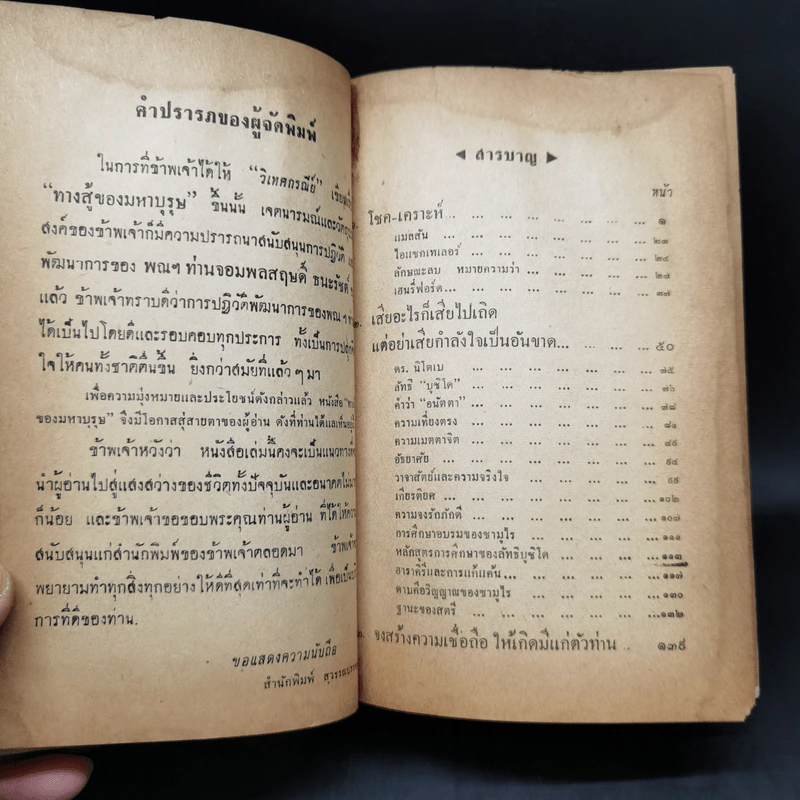 คำปรารภของผู้จัดพิมพ์
ในการที่ข้าพเจ้าได้ให้ "วิเทศกรณีย์"
"ทางสู้ของมหาบุรุษ" ขึ้นนั้น เจตนารมณ์และ
สงค์ของข้าพเจ้าก็มีความปรารถนาสนับสนุนการปฏิวัติ
พัฒนาการของ พณฯ ท่านจอมพลสฤษดิ์ ธนะรัชต์
แล้ว ข้าพเจ้าทราบดีว่าการปฏิวัติพัฒนาการของพณฯ
ได้เป็นไปโดยดีและรอบคอบทุกประการ ทั้งเป็นการ
ใจให้คนทั้งชาติตื่นขึ้น ยิ่งกว่าสมัยที่แล้ว ๆ มา
เพื่อความมุ่งหมายและประโยชน์ดังกล่าวแล้ว หนังสือ
ของมหาบุรุษ" จึงมีโอกาสสู่สายตาของผู้อ่าน ดังที่ท่านได้แลเห็น
ข้าพเจ้าหวังว่า หนังสือเล่มนี้คงจะเป็นแนวทาง
นำผู้อ่านไปสู่แสงสว่างของชีวิตทั้งปัจจุบันและอนาคตไม่
ก็น้อย และข้าพเจ้าขอขอบพระคุณท่านผู้อ่าน ที่ได้ให้
สนับสนุนแก่สำนักพิมพ์ของข้าพเจ้าตลอดมา
พยายามทำทุกสิ่งทุกอย่างให้ดีที่สุดเท่าที่จะทำได้ เพื่อ
การที่ดีของท่าน.
ขอแสดงความนับถือ
สำนักพิมพ์
◀ สารบาญ ▶
หน้า
โชค-เคราะห์ ... ... ... ... ... ... ... ๑
แมลสัน ... ... ... ... ... ... ... ๒๓
ไอแซกเทเลอร์ ... ... ... ... ... ... ๒๔
ลักษณะลบ หมายความว่า ... ... ... ... ... ๒๗
เฮนรี่ฟอร์ด ... ... ... ... ... ... ... ๓๗
๒. เสียอะไรก็เสียไปเถิด
แต่อย่าเสียกำลังใจเป็นอันขาด... ... ... ... ๕๐
ดร. นิโตเบ ... ... ... ... ... ... ๗๕
ลัทธิ "บูชิโด" ... ... ... ... ... ... ๗๖
คำว่า "อนัตตา" ... ... ... ... ... ... ๗๘
ความเที่ยงตรง ... ... ... ... ... ... ๘๑
ความเมตตาจิต ... ... ... ... ... ... ๘๙
อัธยาศัย ... ... ... ... ... ... ... ๙๔
วาจาสัตย์และความจริงใจ ... ... ... ... ... ๙๙
เกียรติยศ ... ... ... ... ... ... ... ๑๐๒
ความจงรักภักดี ... ... ... ... ... ... ๑๐๗
การศึกษาอบรมของซามูไร ... ... ... ... ... ๑๑๑
หลักสูตรการศึกษาของลัทธิบูชิโด ... ... ... ... ๑๑๓
ฮาราคีรีและการแก้แค้น... ... ... ... ... ๑๑๗
ดาบคือวิญญาณของซามูไร ... ... ... ... ... ๑๓๐
ฐานะของสตรี ... ... ... ... ... ... ๑๓๒
๓. จงสร้างความเชื่อถือ ให้เกิดมีแก่ตัวท่าน .. ... ๑๓๙